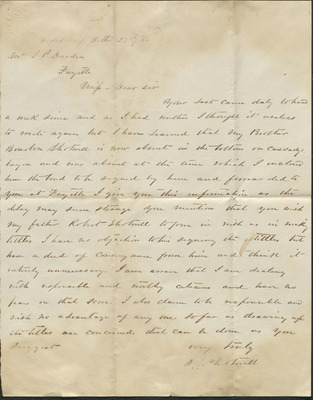 Mr J. P. Darden
Fayette
Miss - Dear Sir
Your last came duly to hand
a week since and as I had written I thought it useless
to write again but I have learned that my Brother
Bourbon Shotwell is now absent in the bottom on Cassedy
bayou and was absent at the time which I mailed
him the bond to be signed by him and forwarded to
you at Fayette I give you this information as the
delay may seem strange. You mention that you wish
my father Robert Shotwell to join in with us in making
titles I have no objection to his signing the titles but
have a deed of conveyance from him and think it
entirely unnecessary. I am aware that I am dealing
with responsible and worthy citizens and have no
fears on that score. I also claim to be responsible and
wish no advantage of any one. So far as drawing up
the titles are concerned that can be done as you
suggest
Very Truly
Shotwell